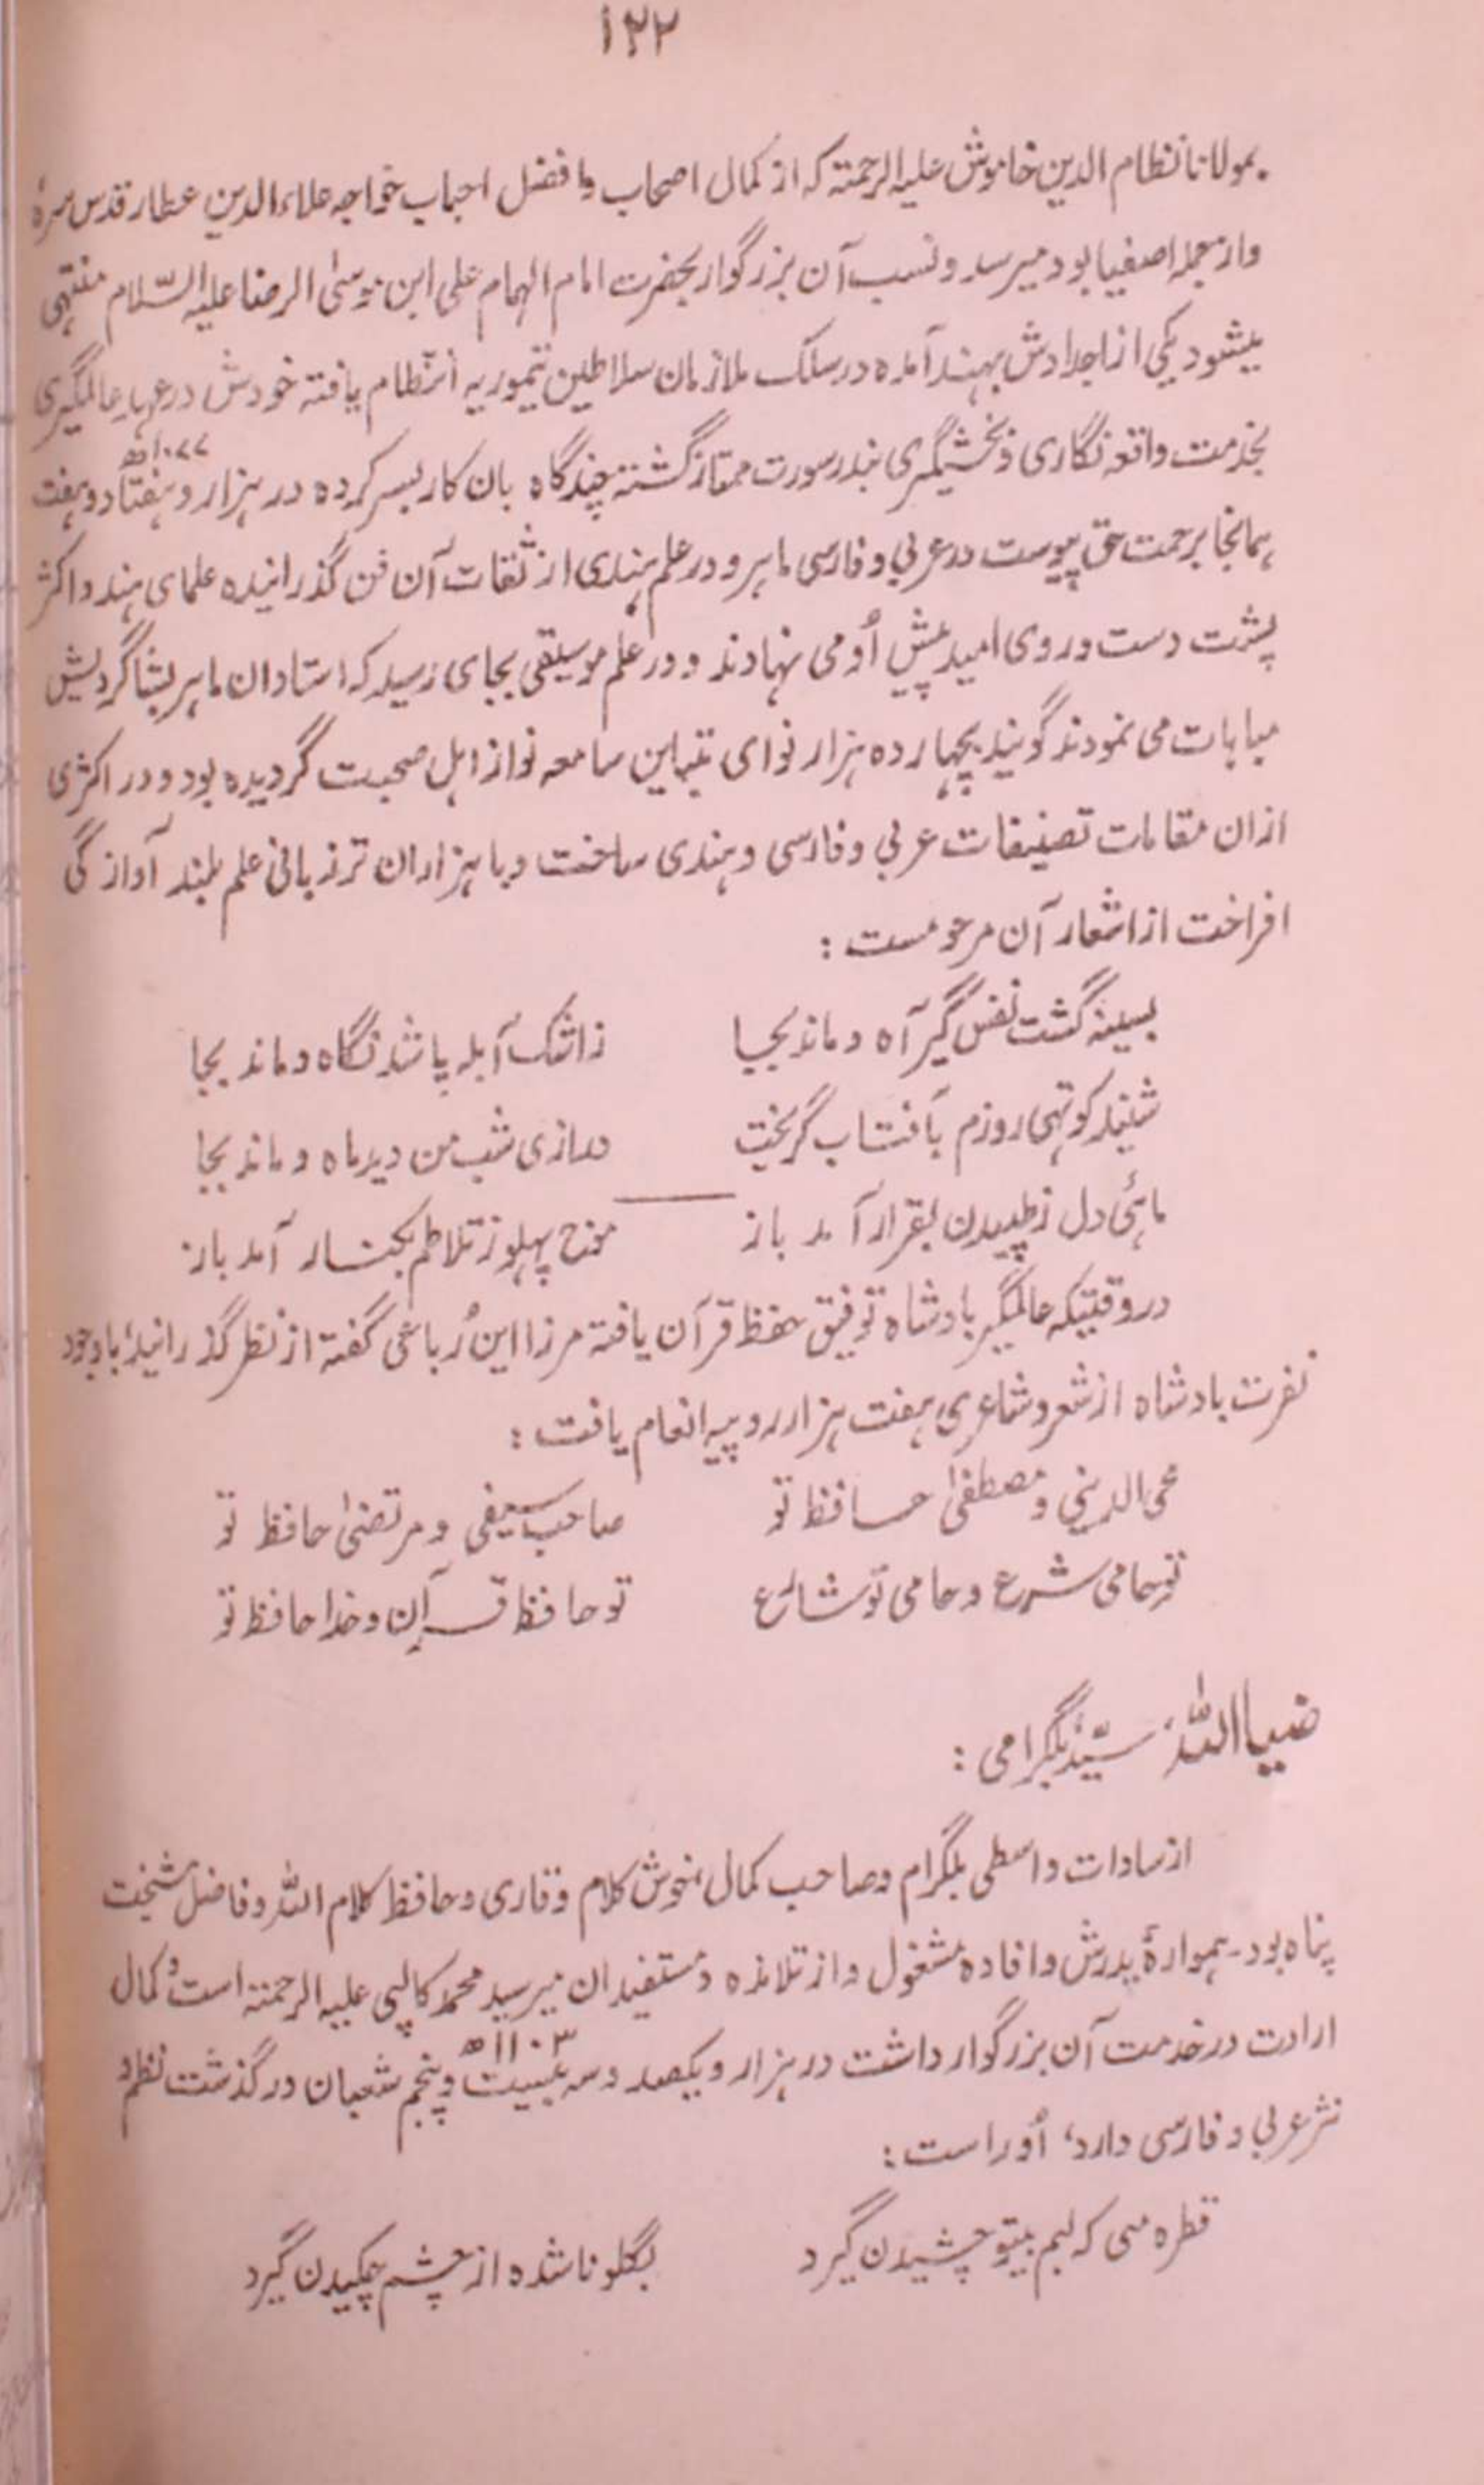 ۱۲۲
بمولانا نظام الدین خاموش علیہ الرحمتہ کہ از کمال اصحاب و افضل احباب خواجہ علاء الدین عطار قدس سرہٗ
واز جملہ اصفیا بود میرسد و نسب آن بزرگوار بحضرت امام الہمام علی ابن موسیٰ الرضا علیہ السّلام منتہی
میشود یکی از اجدادش بہند آمدہ در سلک ملازمان سلاطین تیموریہ انتظام یافتہ خودش در عہد عالمگیری
بخدمت واقعہ نگاری و بخشیگری بندر سورت ممتاز گشتہ چندگاہ بان کار بسر کردہ در ہزار و ہفتاد و ہفت
۱۰۷۷ھ
ہمانجا برحمت حق پیوست در عربی و فارسی ماہر و در علم ہندی از ثقات آن فن گذرانیدہ علمای ہند و اکثر
پشت دست و روی امید پیش اُو می نہادند و در علم موسیقی بجای رسید کہ استادان ماہر بشاگردیش
مباہات می نمودند گویند بچہاردہ ہزار نوای متباین سامعہ نواز اہل صحبت گردیدہ بود و در اکثری
ازان مقامات تصنیفات عربی و فارسی و ہندی ساخت و با ہزاران تر زبانی علم بلند آوازگی
افراخت از اشعار آن مرحومست :
بسینہ گشت نفس گیر آہ و ماند بجا زاشک آبلہ پا شد نگاہ و ماند بجا
شنید کوتہی روزم بآفتاب گریخت درازی شب من دید ماہ و ماند بجا
ماہئ دل ز طپیدن بقرار آمد باز موج پہلو ز تلاطم بکنار آمد باز
در وقتیکہ عالمگیر بادشاہ توفیق حفظ قرآن یافتہ مرزا این رُباعی گفتہ از نظر گذرانید، باوجود
نفرت بادشاہ از شعر و شاعری ہفت ہزار روپیہ انعام یافت :
محی الدینی و مصطفیٰ حافظ تو صاحب سیفی و مرتضیٰ حافظ تو
تو حامی شرع و حامی تو شارع تو حافظ قرآن و خدا حافظ تو
ضیا اللہ، سیّد بلگرامی :
از سادات واسطی بلگرام و صاحب کمال، خوش کلام و قاری و حافظ کلام اللہ و فاضل مشیخت
پناہ بود۔ ہموارہ بدرش و افادہ مشغول و از تلامذہ و مستفیدان میر سید محمد کالپی علیہ الرحمتہ است و کمال
ارادت در خدمت آن بزرگوار داشت در ہزار و یکصد و سہ بیست و پنجم شعبان درگذشت نظم و
۱۱۰۳ھ
نثر عربی و فارسی دارد، اُو راست :
قطرہ می کہ لبم بیتو چشیدن گیرد بگلو ناشدہ از چشم چکیدن گیرد